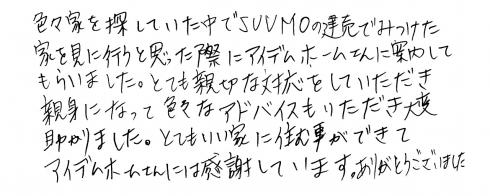 色々家を探していた中でSUUMOの建売でみつけた
家を見に行こうと思った際にアイデムホームさんに案内して
もらいました。とても親切な対応をしていただき
親身になって色々なアドバイスもいただき大変
助かりました。とてもいい家に住む事ができて
アイデムホームさんには感謝しています。ありがとうございました